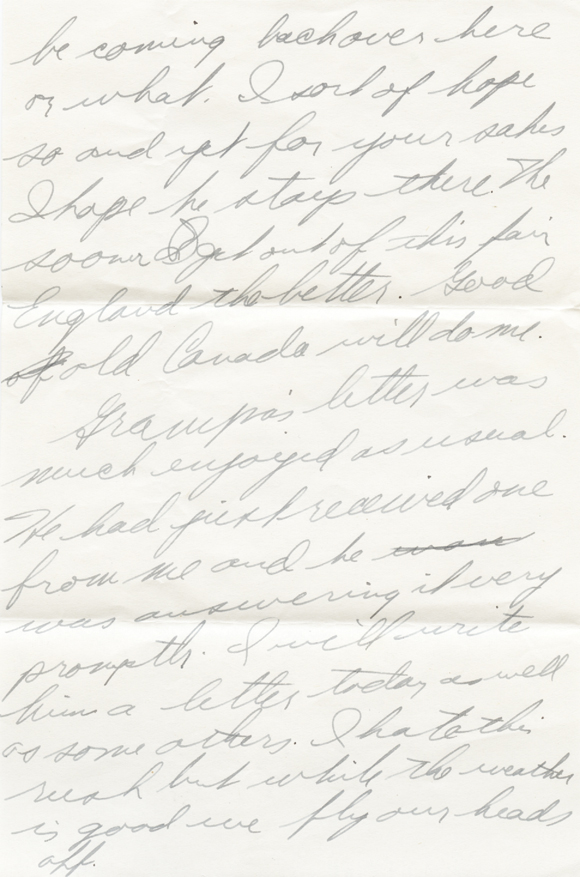 be coming backover here
or what. I sort of hope
so and yet for your sakes
I hope he stays there. The
sooner I get out of this fair
England the better. Good
of old Canada will do me.
Grampa's letter was
much enjoyed as usual.
He had just received one
from me and he wan
was answering it very
promptly. I will write
him a letter today as well
as some others. I hate this
rush but while the weather
is good we fly our heads
off.